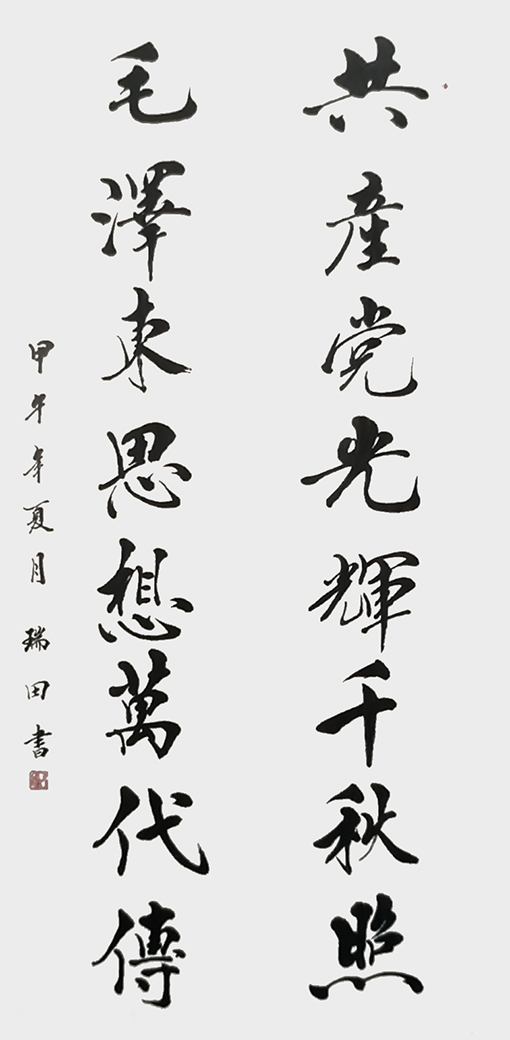 共產党光輝千秋照
毛澤東思想萬代傳
甲午年夏月 瑞田書